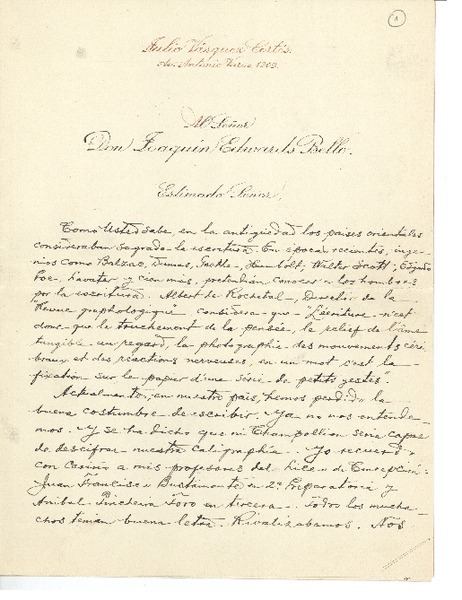 1
Julio Vásquez Cortés.
Av. Antonio Varas 1203.
Al Señor
Don Joaquin Edwards Bello.
Estimado Señor,
Como Usted sabe, en la antigüedad los paises orientales
consideraban sagrada la escritura. En época reciente, inge-
nios como Balzac, Dumas, Goethe, Humbolt, Walter Scott, Edgardo
Poe, Lavater y cien mas, pretendian conocer a los hombres
por la escritura. Albert de Rochetal, Director de la
"Revue graphologique" considera que "L'écriture n'est
donc que le touchement de la pensée, le relief de l'âme
tangible au regard, la photographie des mouvements céré
braux et des réactions nerveuses, en un mot c'est la
fixation sur le papier d'une série de petits gestes".
Actualmente, en nuestro país, hemos perdido la
buena costumbre de escribir. Ya no nos entende-
mos. Y se ha dicho que ni Champollion seria capaz
de descifrar nuestra caligrafia. Yo recuerdo
con cariño a mis profesores del Liceo de Concepción:
Juan Francisco Bustamante en 2ª Preparatoria y
Anibal Pincheira Toro en tercera. Todos los mucha-
chos tenian buena letra. Rivalizabamos. Nos